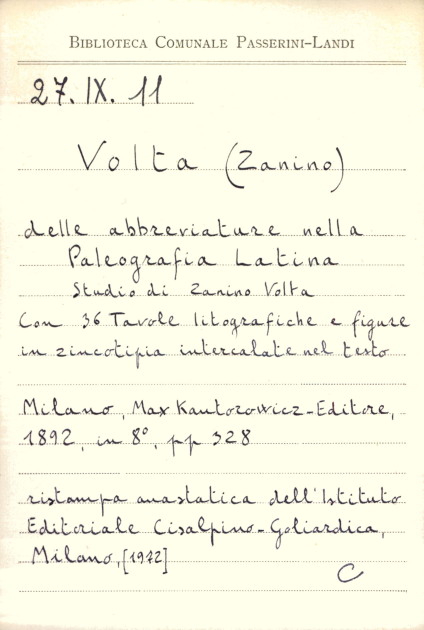 BIBLIOTECA COMUNALE PASSERINI-LANDI
27. IX. 11
Volta (Zanino)
delle abbreviature nella
Paleografia Latina
Studio di Zanino Volta
Con 36 Tavole litografiche e figure
in zincotipia intercalate nel testo
Milano, Max Kantorowicz-Editore,
1892, in 8°, pp 328
ristampa anastatica dell'Istituto
Editoriale Cisalpino-Goliardica,
Milano, [1972]
C